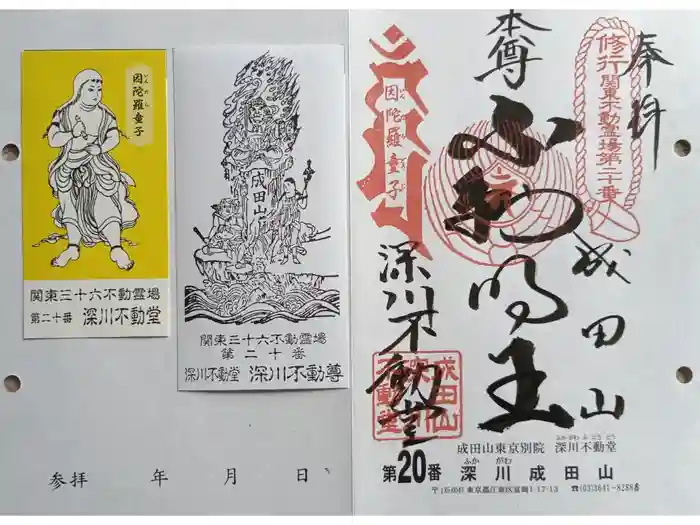 因陀羅童子
いんだら
関東三十六不動霊場
第二十番 深川不動堂
成田山
関東三十六不動霊場
第二十番
深川不動堂 深川不動尊
参拝 年 月 日
奉拝
修行 関東不動霊場第二十番
本尊
不動明王
成田山
因陀羅童子
深川不動堂
成田山東京別院 深川不動堂
ふかがわふどうどう
第20番 深川成田山
ふか がわ
東京都江東区富岡1-17-13 ☎(03)3641-8288番